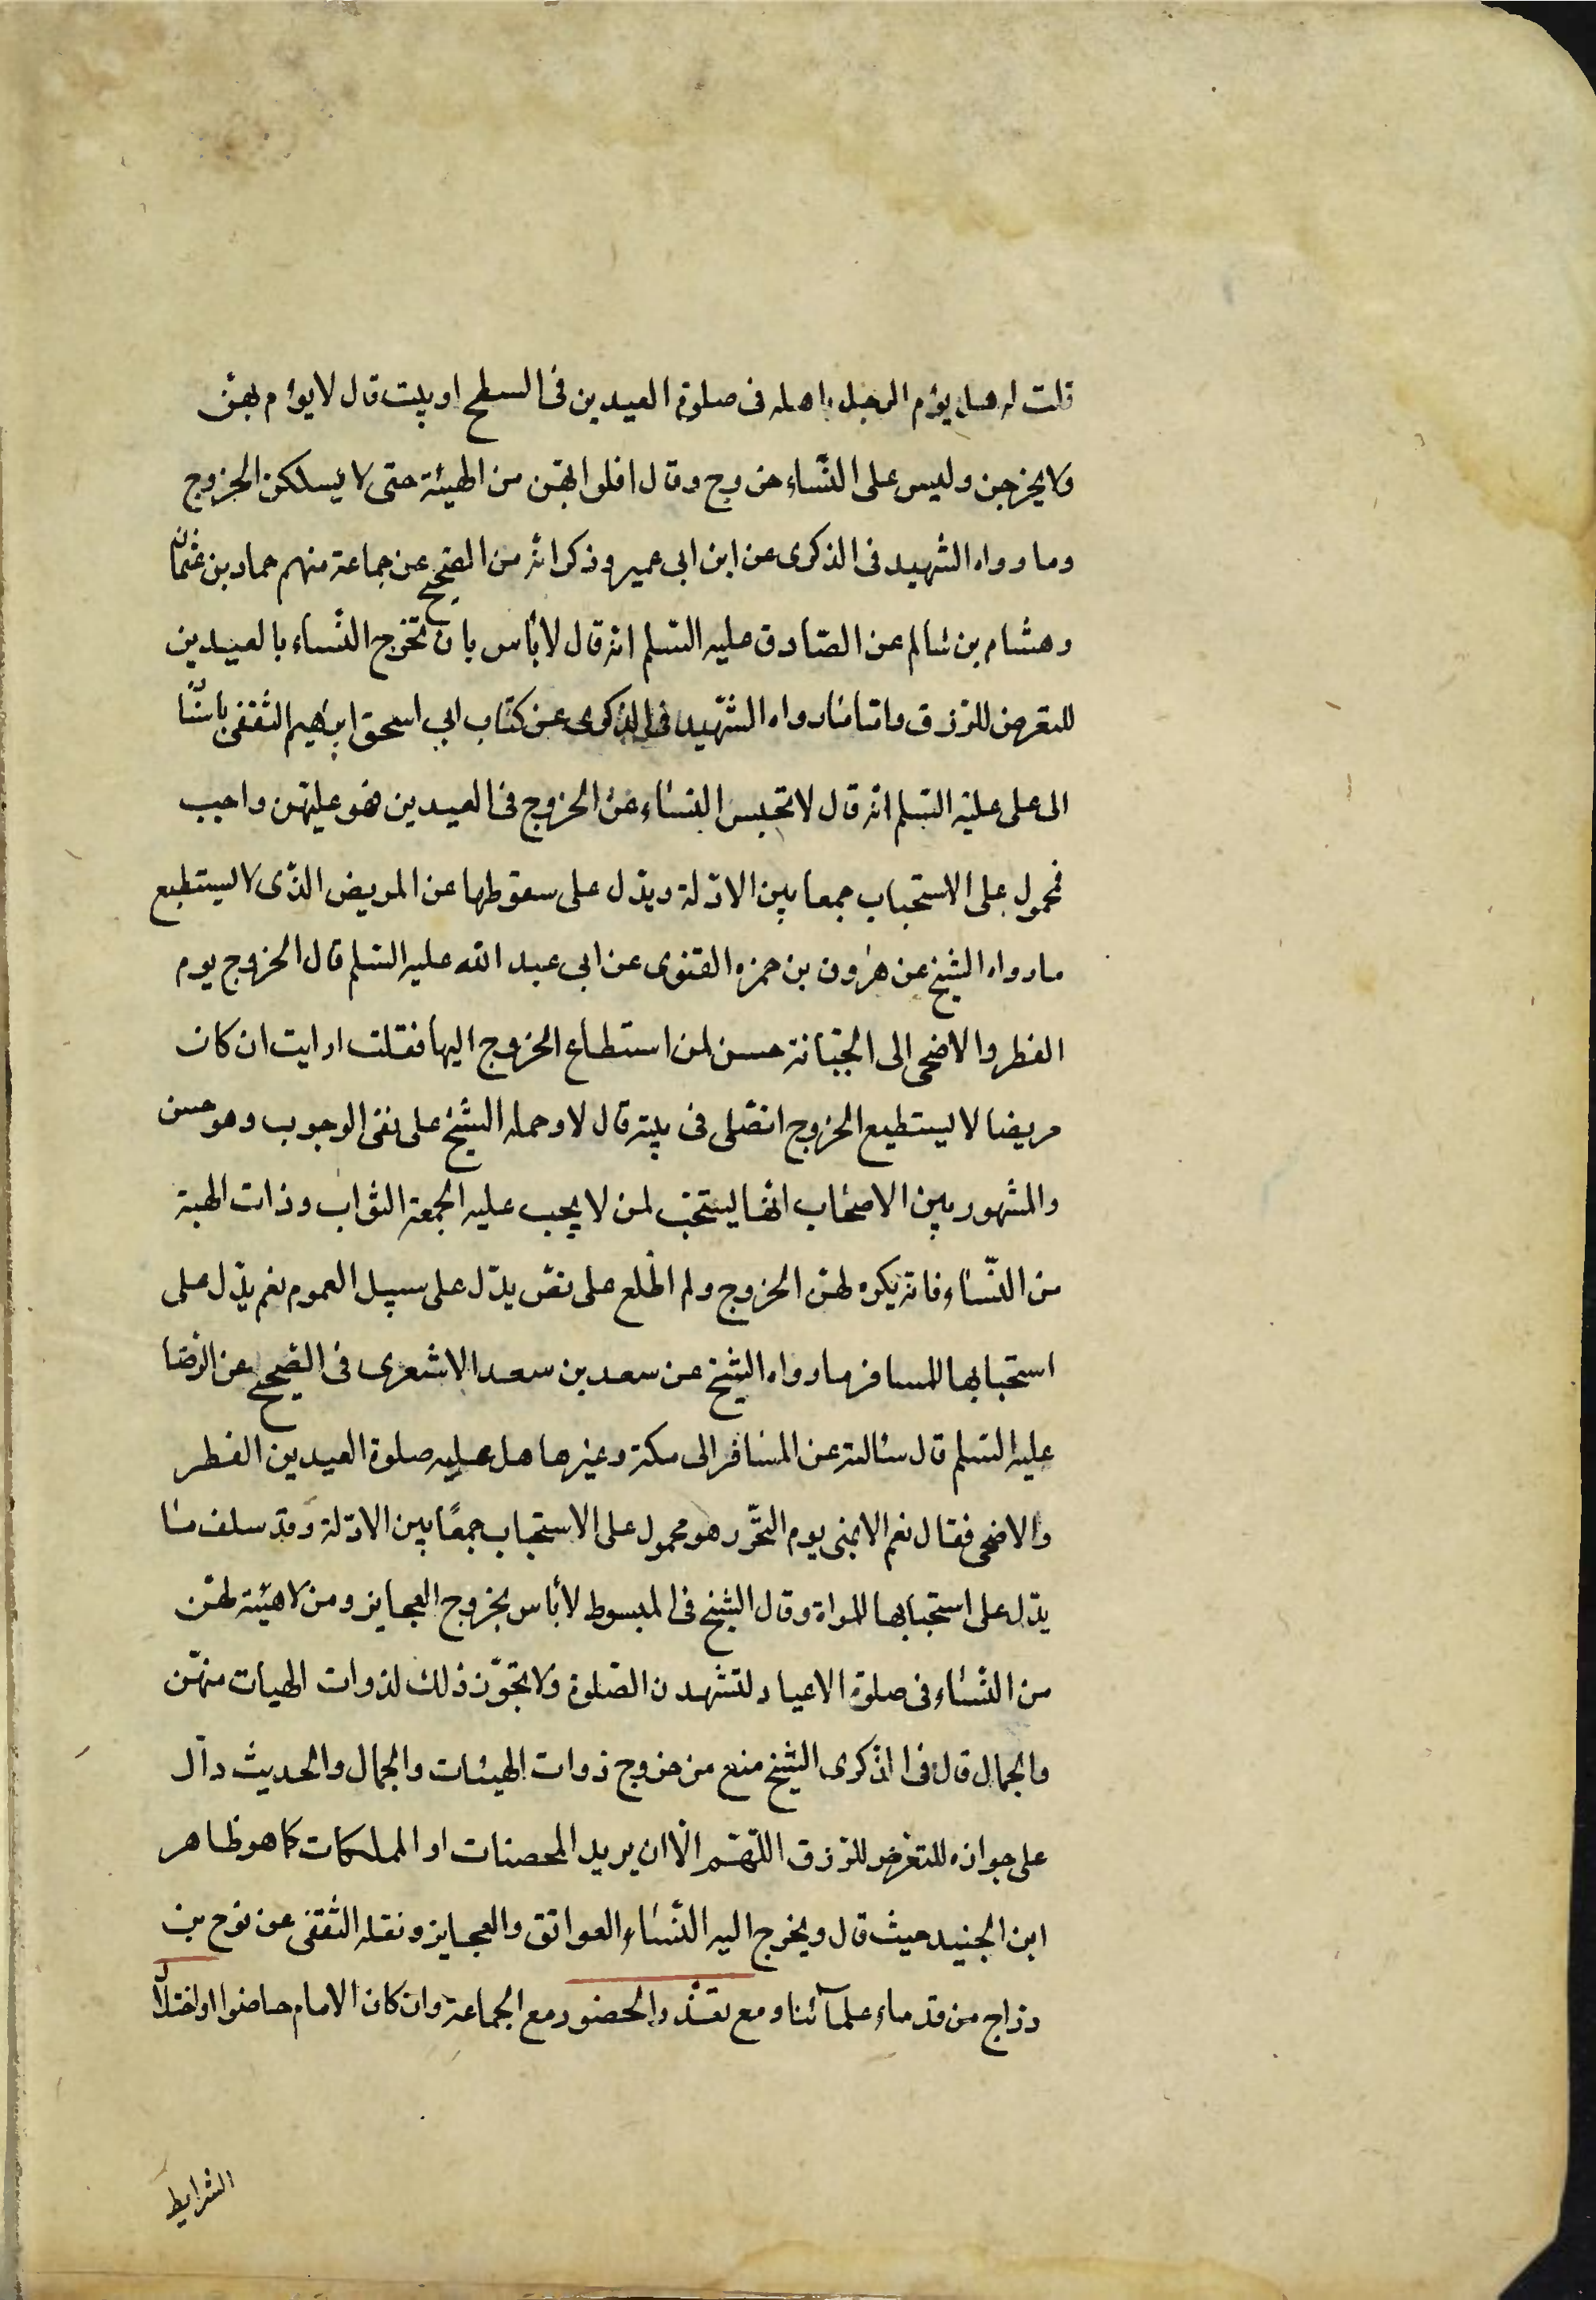 قلت له هل يؤم الرجل باهله فى صلوة العيدين فى السطح او بيت قال لا يؤم بهن
ولا يخرجن وليس على النساء خروج وقال اقلوا لهن من الهيئة حتى لا يسلكن الخروج
وما رواه الشهيد فى الذكرى عن ابن ابى عمير وذكر انه من الصحيح عن جماعة منهم حماد بن عثمان
وهشام بن سالم عن الصادق عليه السلم انه قال لا بأس بان تخرج النساء بالعيدين
للتعرض للرزق واما ما رواه الشهيد فى الذكرى عن كتاب ابى اسحق ابرهيم الثقفى باسنا
الى على عليه السلم انه قال لا تحبس النساء عن الخروج فى العيدين فهو عليهن واجب
فمحمول على الاستحباب جمعا بين الادلة ويدل على سقوطها عن المريض الذى لا يستطيع
ما رواه الشيخ عن هرون بن حمزه الغنوى عن ابى عبد الله عليه السلم قال الخروج يوم
الفطر والاضحى الى الجبانة حسن لمن استطاع الخروج اليها فقلت ارايت ان كان
مريضا لا يستطيع الخروج ايصلى فى بيته قال لا وحمله الشيخ على نفى الوجوب وهو حسن
والمشهور بين الاصحاب انها يستحب لمن لا يجب عليه الجمعة الثواب وذات الهبة
من النساء فانه يكره لهن الخروج ولم اطلع على نص يدل على سبيل العموم نعم يدل على
استحبابها للمسافر ما رواه الشيخ عن سعد بن سعد الاشعرى فى الصحيح عن الرضا
عليه السلم قال سالته عن المسافر الى مكة وغيرها هل عليه صلوة العيدين الفطر
والاضحى فقال نعم الا بمنى يوم النحر وهو محمول على الاستحباب جمعًا بين الادلة وقد سلف ما
يدل على استحبابها للمراة وقال الشيخ فى المبسوط لا بأس بخروج العجايز ومن لا هيئة لهن
من النساء فى صلوة الاعياد لتشهدن الصلوة ولا يجوز ذلك لذوات الهيات منهن
والجمال قال فى الذكرى الشيخ منع من خروج ذوات الهيئات والجمال والحديث دال
على جوازه للتعرض للرزق اللهم الا ان يريد المحصنات او المملكات كما هو ظاهر
ابن الجنيد حيث قال ويخرج اليه النساء العواتق والعجايز ونقله الثقفى عن نوح بن
دراج من قدماء علمآئنا ومع تعذر الحضور مع الجماعة وان كان الامام حاضرا او اختلال
الشرايط